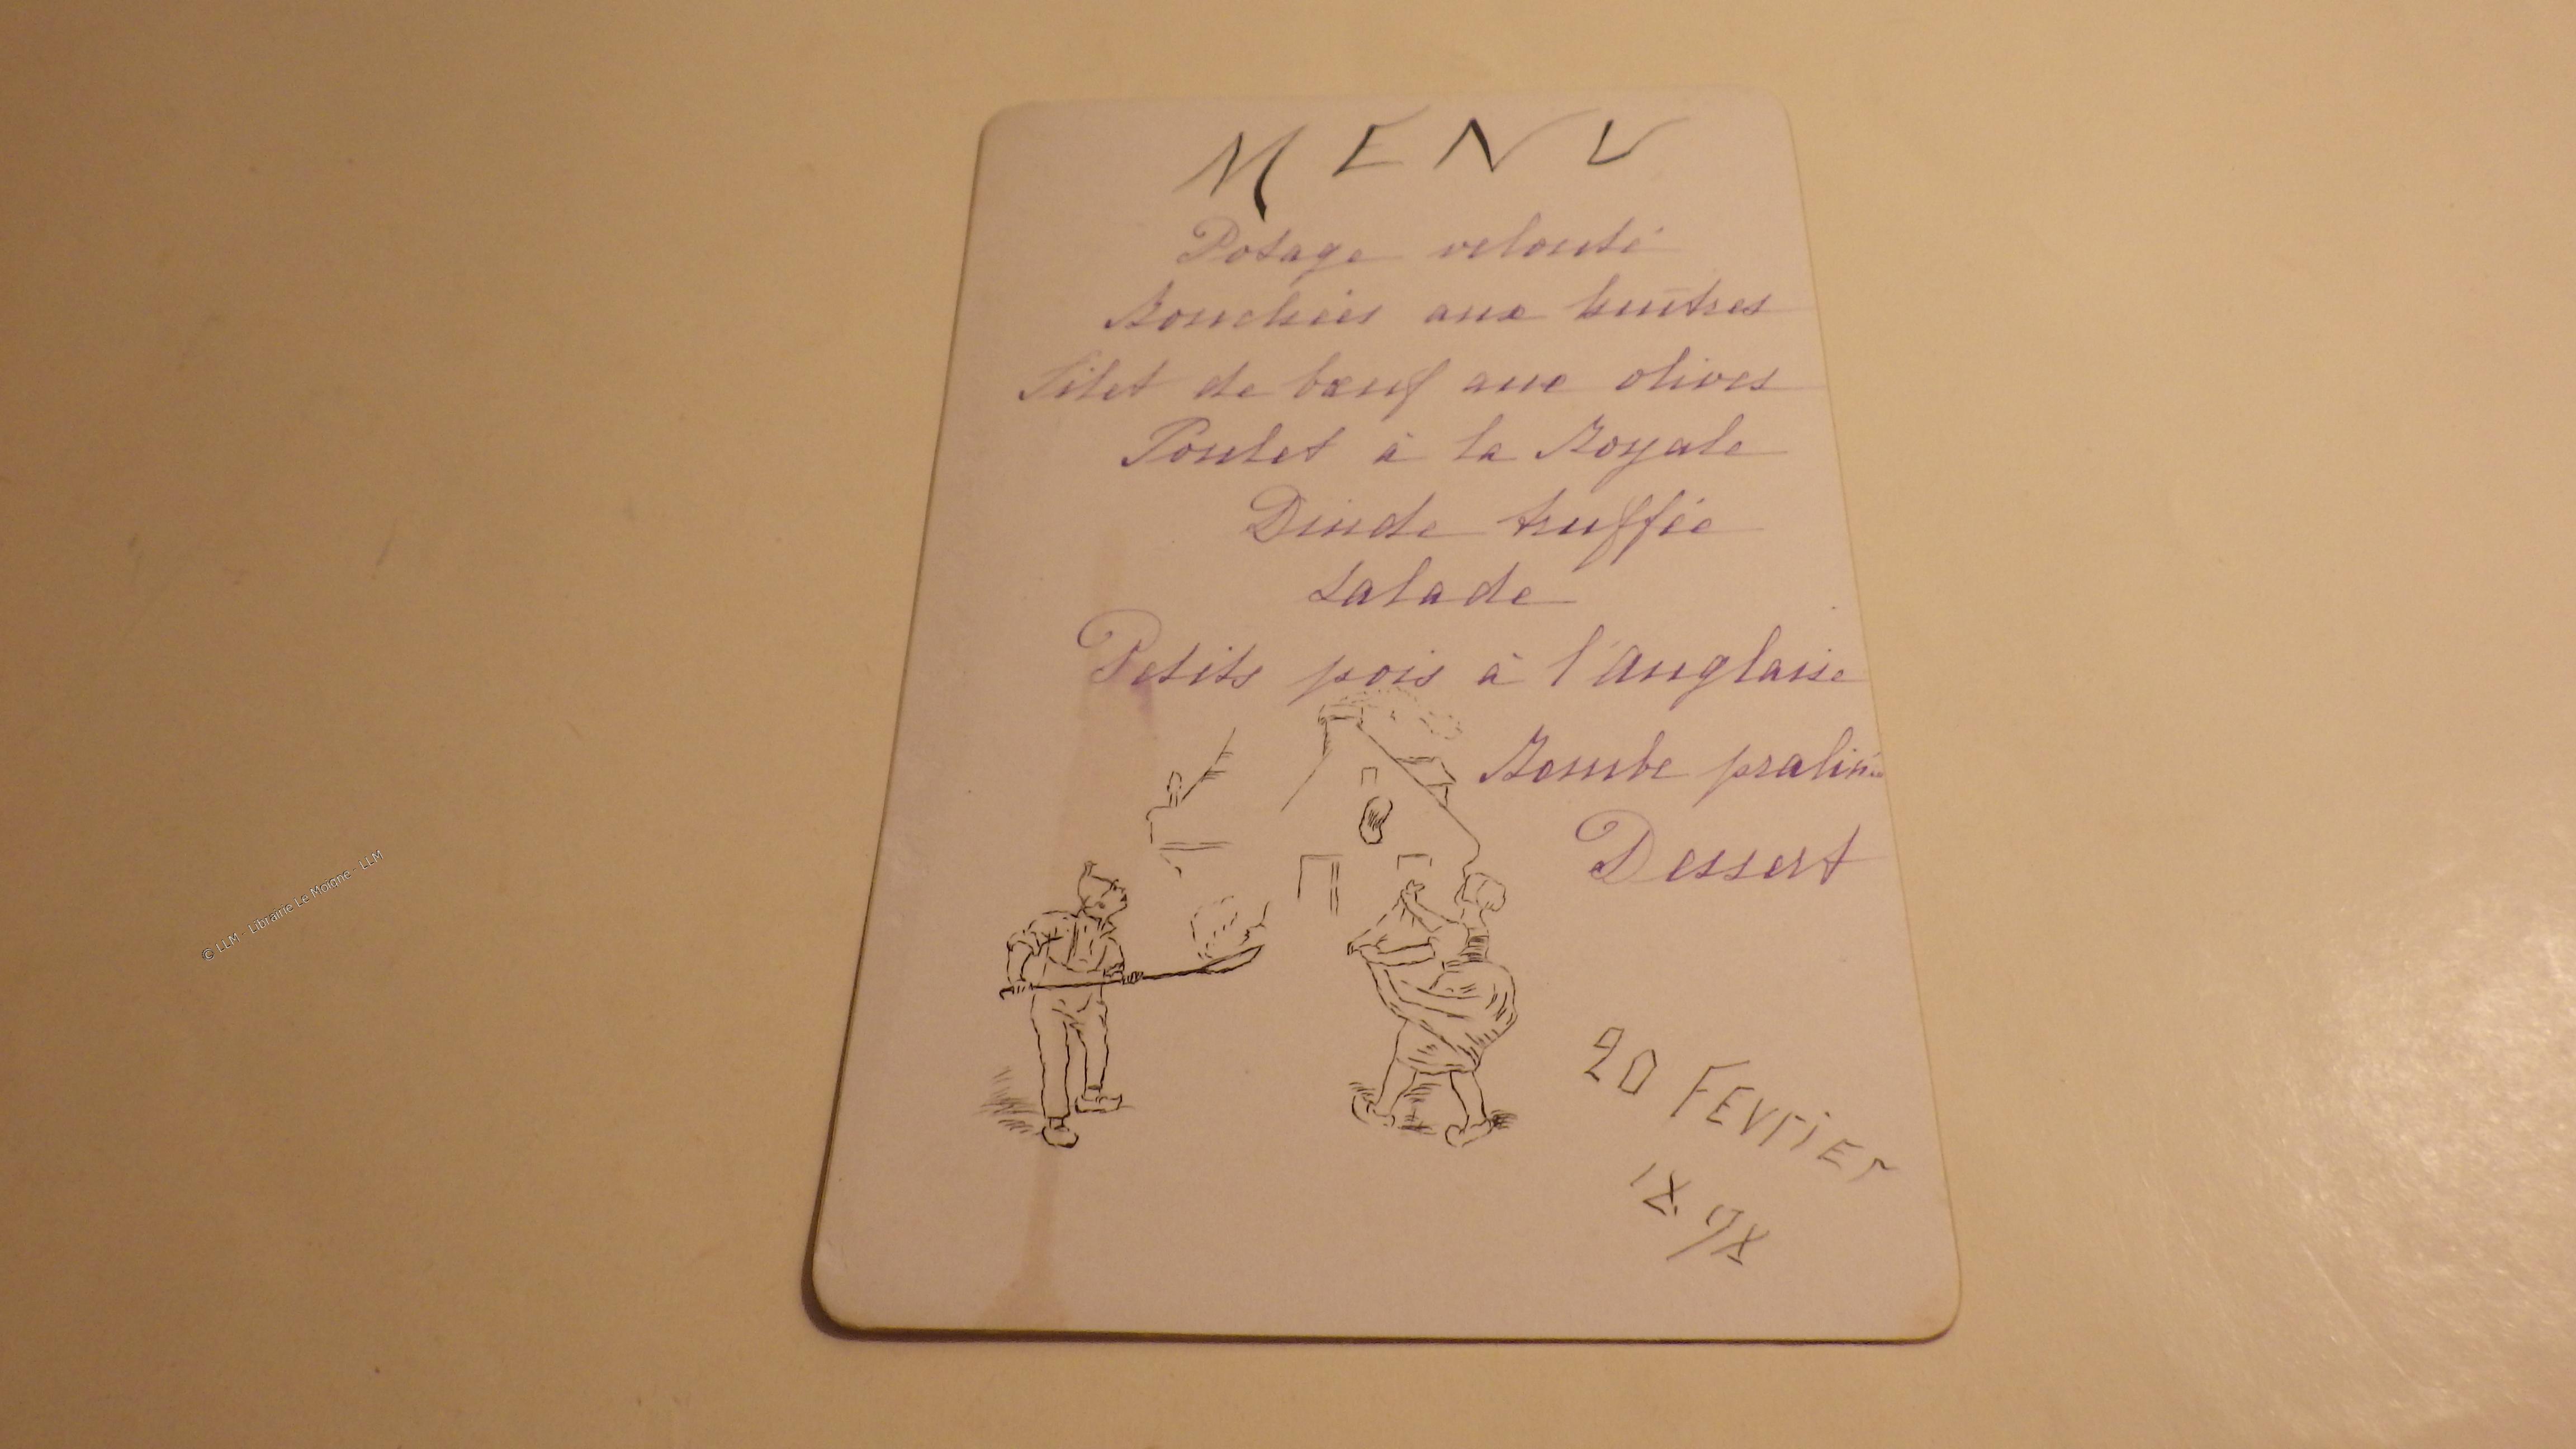 MENU
Potage velouté
Bouchées aux huîtres
Filet de bœuf aux olives
Poulet à la Royale
Dinde truffée
Salade
Petits pois à l'Anglaise
Bombe pralinée
Dessert
20 FEVriEr
1898
© LLM - Librairie Le Moigne - LLM